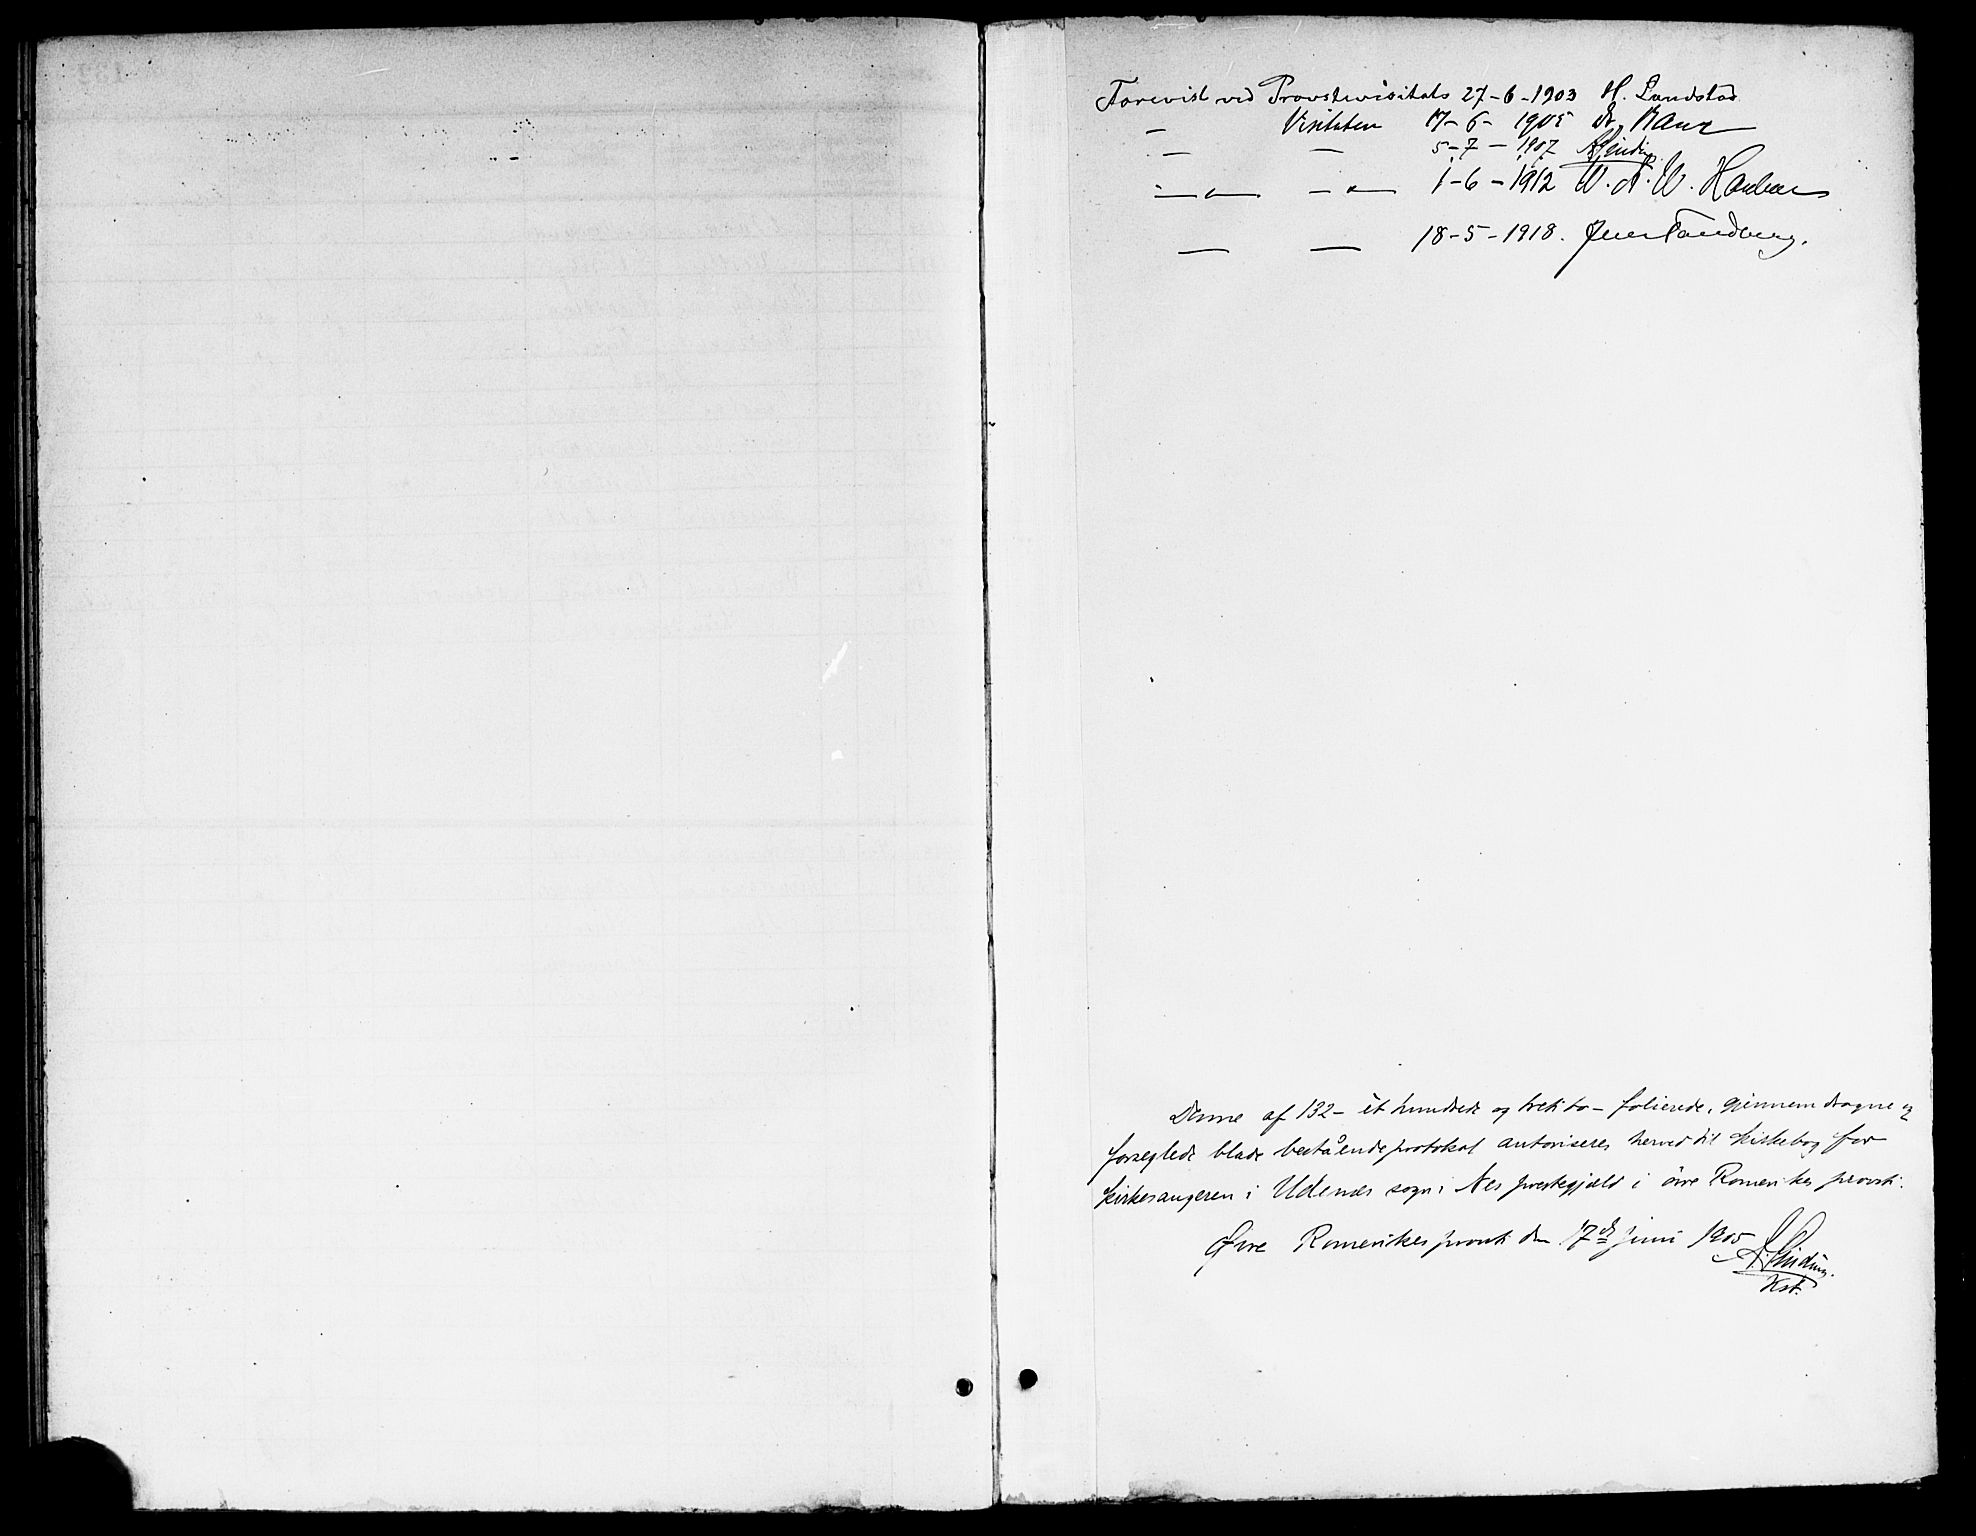 Forevist ved Provstevisitats 27-6-1903 H. Landstad
— Visitaten 17-6-1905 Dr. Bang
— — 5-7-1907 A Sinding
— " — — " — 1-6-1912 W. A. W.
— — 18-5-1918. Jens Tandberg.
Denne af 132 - ét hundrede og treti to - folierede, gjennemdragne og
forseglede blade bestående protokol autoriseres herved til kirkebog for
kirkesangeren i Udenæs sogn i Nes prestegjæld i øvre Romerikes provsti.
Øvre Romerikes provsti den 17de juni 1905
A. Sinding.
Kst.